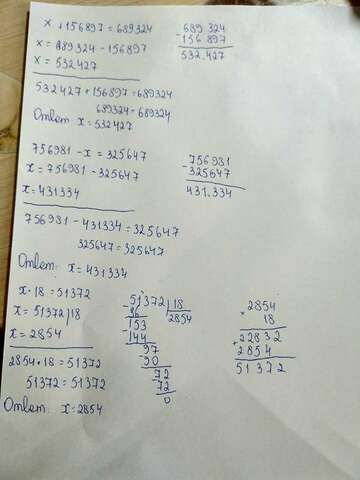 x + 156897 = 689324
x = 689324 - 156897
x = 532427
689 324
- 156 897
532.427
532427 + 156897 = 689324
689324 = 689324
Ответ x = 532427
756981 - x = 325647
x = 756981 - 325647
x = 431334
756981
- 325647
431.334
756981 - 431334 = 325647
325647 = 325647
Ответ: x = 431334
x · 18 = 51372
x = 51372 | 18
x = 2854
2854 · 18 = 51372
51372 = 51372
Ответ: x = 2854
- 51372 | 18
36 2854
- 153
144
- 97
90
- 72
72
0
× 2854
18
+ 22832
2854
51372